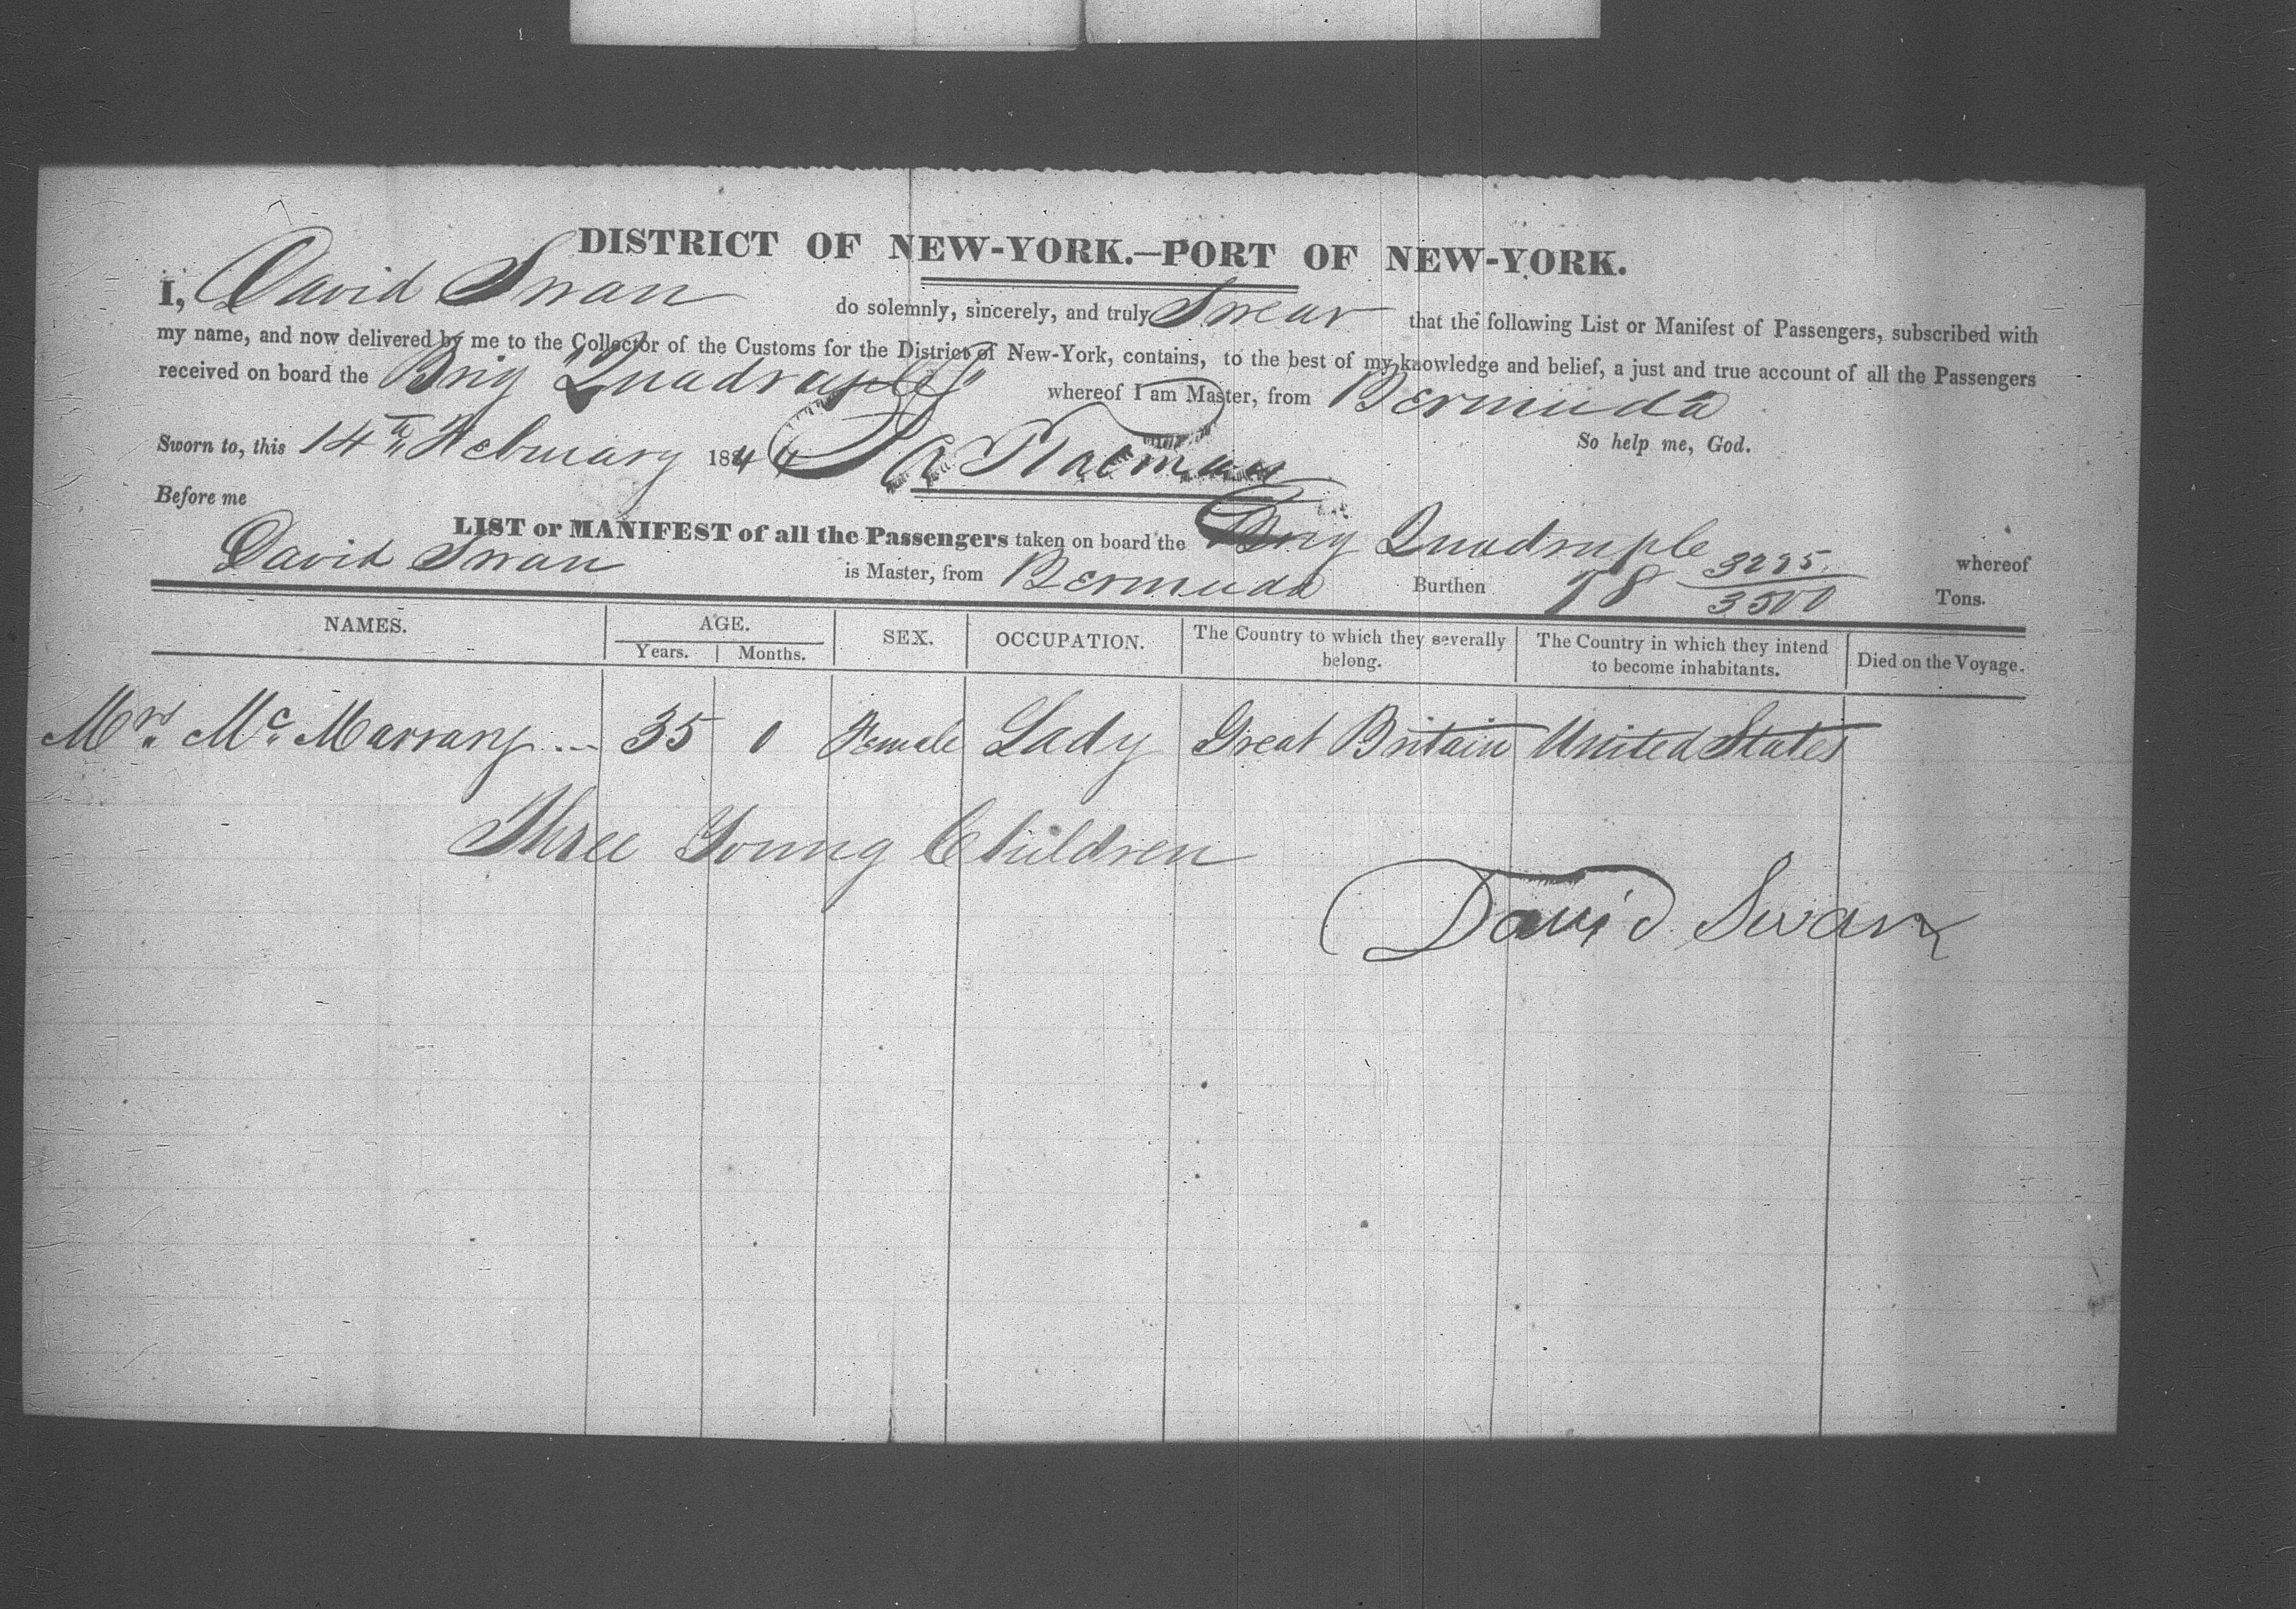 DISTRICT OF NEW-YORK.—PORT OF NEW-YORK.
I, David Swan do solemnly, sincerely, and truly Swear that the following List or Manifest of Passengers, subscribed with
my name, and now delivered by me to the Collector of the Customs for the District of New-York, contains, to the best of my knowledge and belief, a just and true account of all the Passengers
received on board the Brig "Quadruple" whereof I am Master, from Bermuda
Sworn to, this 14th February 184 So help me, God.
Before me
LIST or MANIFEST of all the Passengers taken on board the Brig Quadruple whereof
David Swan is Master, from Bermuda Burthen 78 Tons.
NAMES. AGE. SEX. OCCUPATION. The Country to which they severally belong. The Country in which they intend to become inhabitants. Died on the Voyage.
Years. Months.
Mrs. Mc. Marrany 35 0 Female Lady Great Britain United States
Three Young Children
David Swan